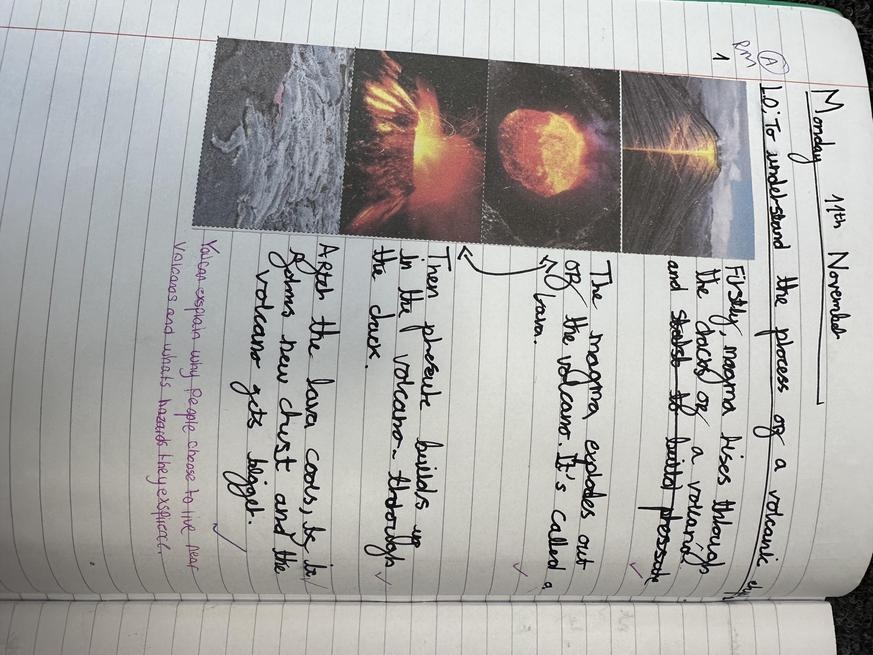 Monday 11th November
A
RM
1
L.O: To understand the process of a volcanic
Firstly, magma rises through
the cracs of a volcano
and start to build pressure
The magma explodes out
of the volcano. It's called a
lava.
Then presure builds up
in the volcano thorough
the crack.
After the lava cools, it
forms new crust and the
volcano gets bigger.
You can exsplain why people choose to live near
volcanos and whats hazards they